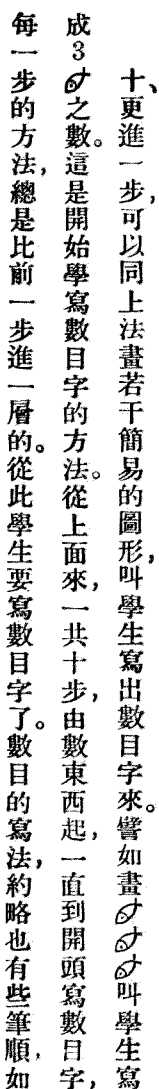 十、更進一步，可以同上法畫若干簡易的圖形，叫學生寫出數目字來。譬如畫叫學生寫
成3之數。這是開始學寫數目字的方法。從上面來，一共十步，由數東西起，一直到開頭寫數目字，
每一步的方法，總是比前一步進一層的。從此學生要寫數目字了。數目的寫法，約略也有些筆順，如